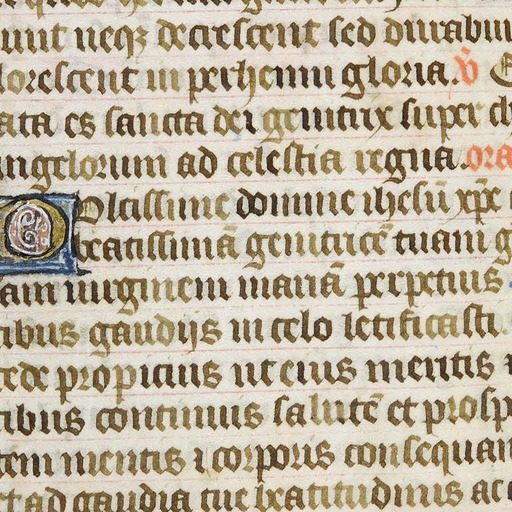 unt neqz decrescent sed durabun
lorescent in perhenni gloria. v̄
ata es sancta dei genitrix super ch
ngelorum ad celestia regna. ora
Dlcissime domine ihesū xp̄e
beatissimā genitricē tuam g
am uirginem mariā perpetuis
tibus gaudijs in celo letificasti
cede propicius ut eius meritis
cibus continuis salutē et prosp
tem mentis ⁊ corporis consequam
t ad gaudia tue beatitudinis ac